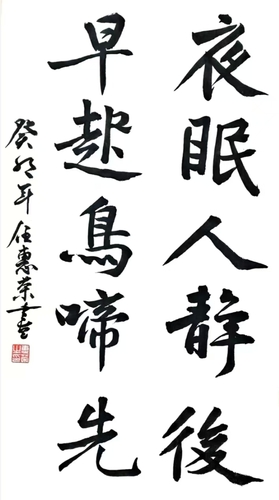 夜眠人静後
早起鳥啼先
癸卯年任惠荣書